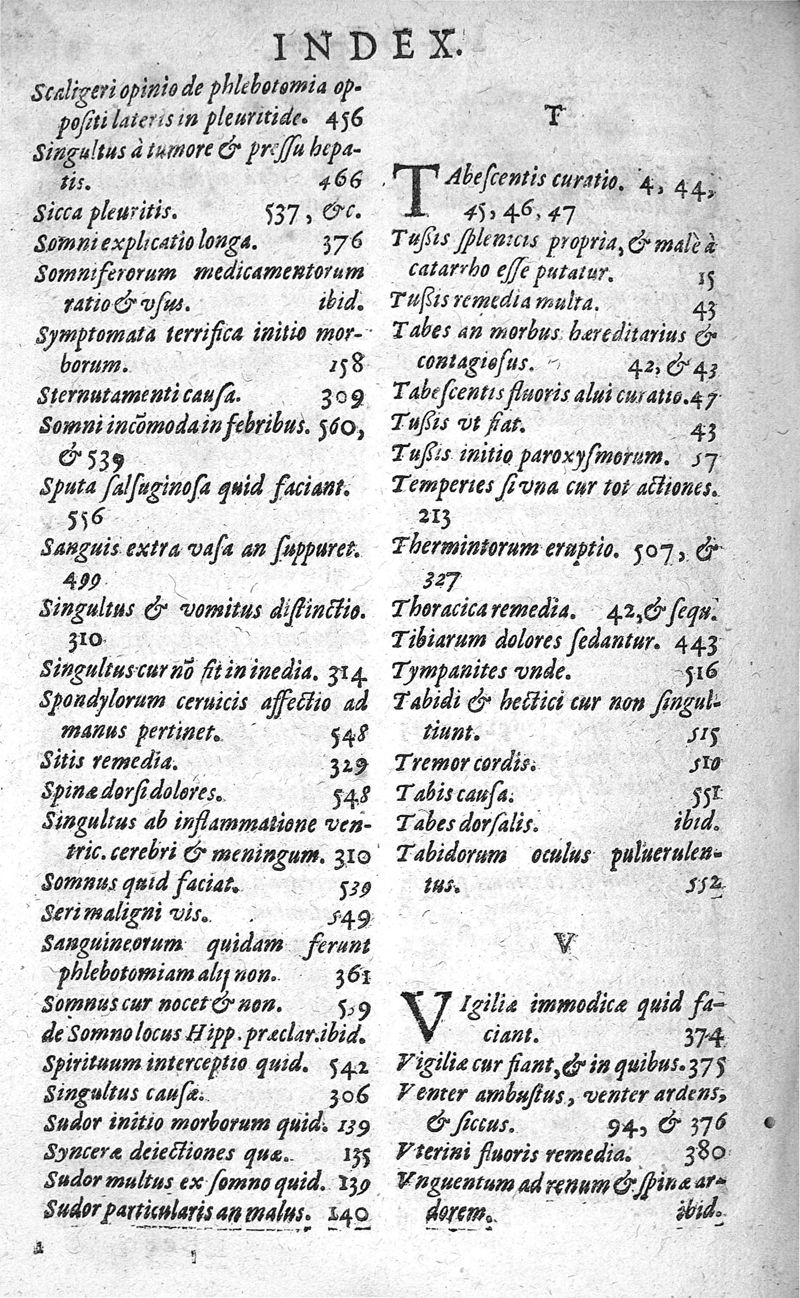 INDEX.
Scaligeri opinio de phlebotomia op-
positi lateris in pleuritide. 456
Singultus à tumore & pressu hepa-
tis. 466
Sicca pleuritis. 537, &c.
Somni explicatio longa. 376
Somniferorum medicamentorum
ratio & vsus. ibid.
Symptomata terrifica initio mor-
borum. 158
Sternutamenti causa. 309
Somni incōmoda in febribus. 560,
& 539
Sputa salsuginosa quid faciant.
556
Sanguis extra vasa an suppuret.
499
Singultus & vomitus distinctio.
310
Singultus cur nō fit in inedia. 314
Spondylorum ceruicis affectio ad
manus pertinet. 548
Sitis remedia. 329
Spinæ dorsi dolores. 548
Singultus ab inflammatione ven-
tric. cerebri & meningum. 310
Somnus quid faciat. 539
Seri maligni vis. 549
Sanguineorum quidam ferunt
phlebotomiam alij non. 361
Somnus cur nocet & non. 539
de Somno locus Hipp. præclar. ibid.
Spirituum interceptio quid. 542
Singultus causæ. 306
Sudor initio morborum quid. 139
Synceræ deiectiones quæ. 135
Sudor multus ex somno quid. 139
Sudor particularis an malus. 140
T
TAbescentis curatio. 4, 44,
45, 46, 47
Tußis splenicis propria, & malè à
catarrho esse putatur. 15
Tußis remedia multa. 43
Tabes an morbus hæreditarius &
contagiosus. 42, & 43
Tabescentis fluoris alui curatio. 47
Tußis vt fiat. 43
Tußis initio paroxysmorum. 57
Temperies si vna cur tot actiones.
213
Thermintorum eruptio. 507, &
327
Thoracica remedia. 42, & sequ.
Tibiarum dolores sedantur. 443
Tympanites vnde. 516
Tabidi & hectici cur non singul-
tiunt. 515
Tremor cordis. 510
Tabis causa. 551
Tabes dorsalis. ibid.
Tabidorum oculus puluerulen-
tus. 552
V
VIgiliæ immodicæ quid fa-
ciant. 374
Vigiliæ cur fiant, & in quibus. 375
Venter ambustus, venter ardens,
& siccus. 94, & 376
Vterini fluoris remedia. 380
Vnguentum ad renum & spinæ ar-
dorem. ibid.